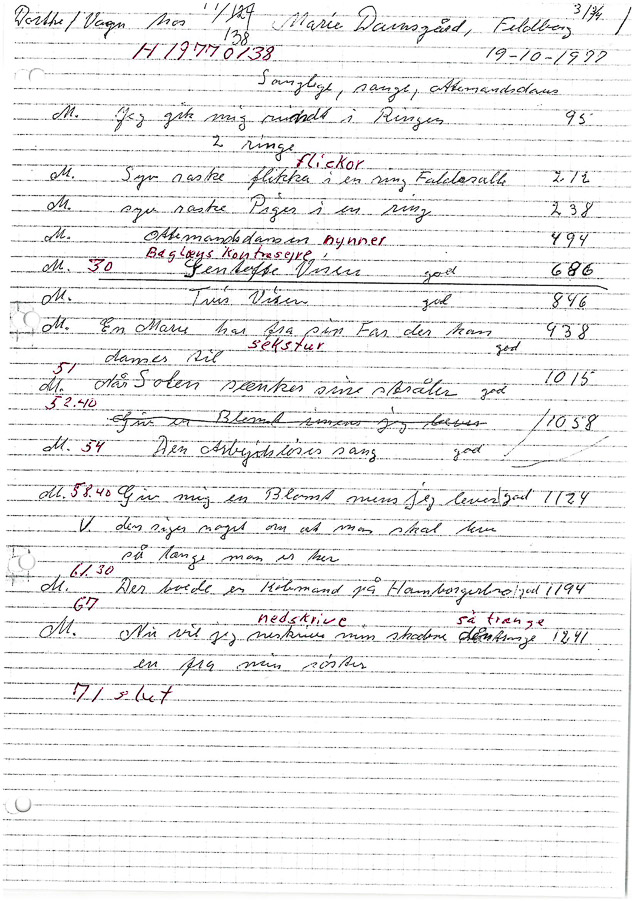 Dorthe/Vagn hos 11/129 Marie Damsgård, Feldborg 3/3/4
138
H 19770138 19-10-1977
Sanglege, sange, ottemandsdans
M. Jeg gik mig rundt i Ringen 95
2 ringe
flickor
M. Syv raske flikka i en ring Faldesalle 212
M. syv raske Piger i en ring 238
M. Ottemandsdansen nynner 494
Baglæns Kontrasejre
M. 30 Gentofte Visen god 686
M. Tvis Visen god 846
M. En Marie har fra sin Far der kan 938
sekstur god
danses til
51
M. Når Solen sænker sine stråler god 1015
52.40
Giv en Blomst imens jeg lever /1058
M. 54 Den Arbejdsløses sang god
M. 58.40 Giv mig en Blomst mens jeg lever god 1124
V. den siger noget om at man skal leve
så længe man er her
61.30
M. Der boede en Kolemand på Hamborgerbro god 1194
67
nedskrive så trange
M. Nu vil jeg neskrive min skæbne 1241
en fra min söster
71 slut